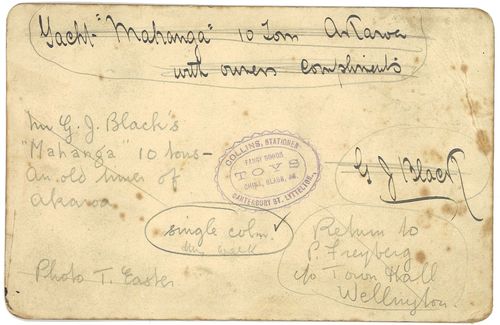 Yacht "Mahanga" 10 Tons Akaroa
with owners compliments
Mr G. J. Black's
"Mahanga" 10 tons –
an old timer of
Akaroa
COLLINS, STATIONER
FANCY GOODS
TOYS
CHINA, GLASS, &c.
CANTERBURY ST. LYTTELTON
G J Black
single colm. ✓
this week
Return to
P. Freyberg
c/o Town Hall
Wellington.
Photo T. Easter